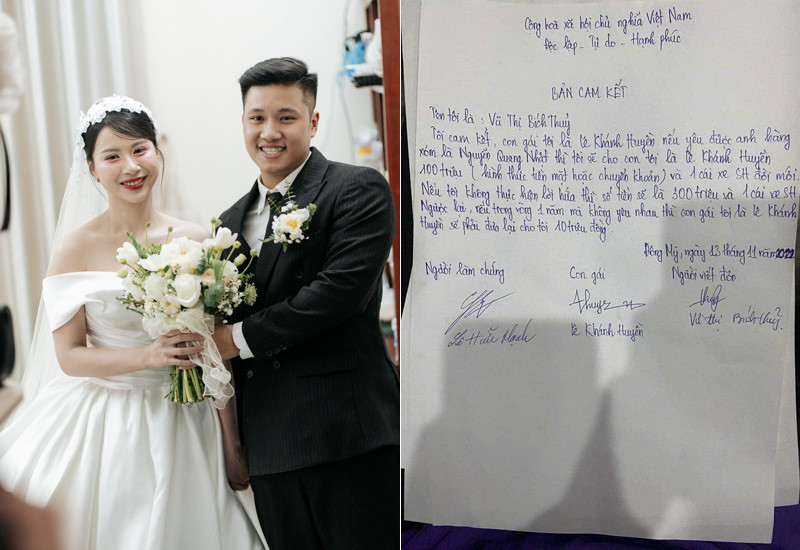 Cộng hoà xã hội chủ nghĩa Việt Nam
Độc lập - Tự do - Hạnh phúc
BẢN CAM KẾT
Tên tôi là : Vũ Thị Bích Thuỷ
Tôi cam kết, con gái tôi là Lê Khánh Huyền nếu yêu được anh hàng
xóm là Nguyễn Quang Nhật thì tôi sẽ cho con tôi là Lê Khánh Huyền
100 triệu ( hình thức tiền mặt hoặc chuyển khoản) và 1 cái xe SH đời mới.
Nếu tôi không thực hiện lời hứa thì số tiền sẽ là 300 triệu và 1 cái xe SH
Ngược lại, nếu trong vòng 1 năm mà không yêu nhau thì con gái tôi là Lê Khánh
Huyền sẽ phải đưa lại cho tôi 10 triệu đồng.
Đông Mỹ, ngày 13 tháng 11 năm 2022
Người làm chứng Con gái Người viết đơn
Lê Hữu Mạnh Lê Khánh Huyền Vũ Thị Bích Thuỷ